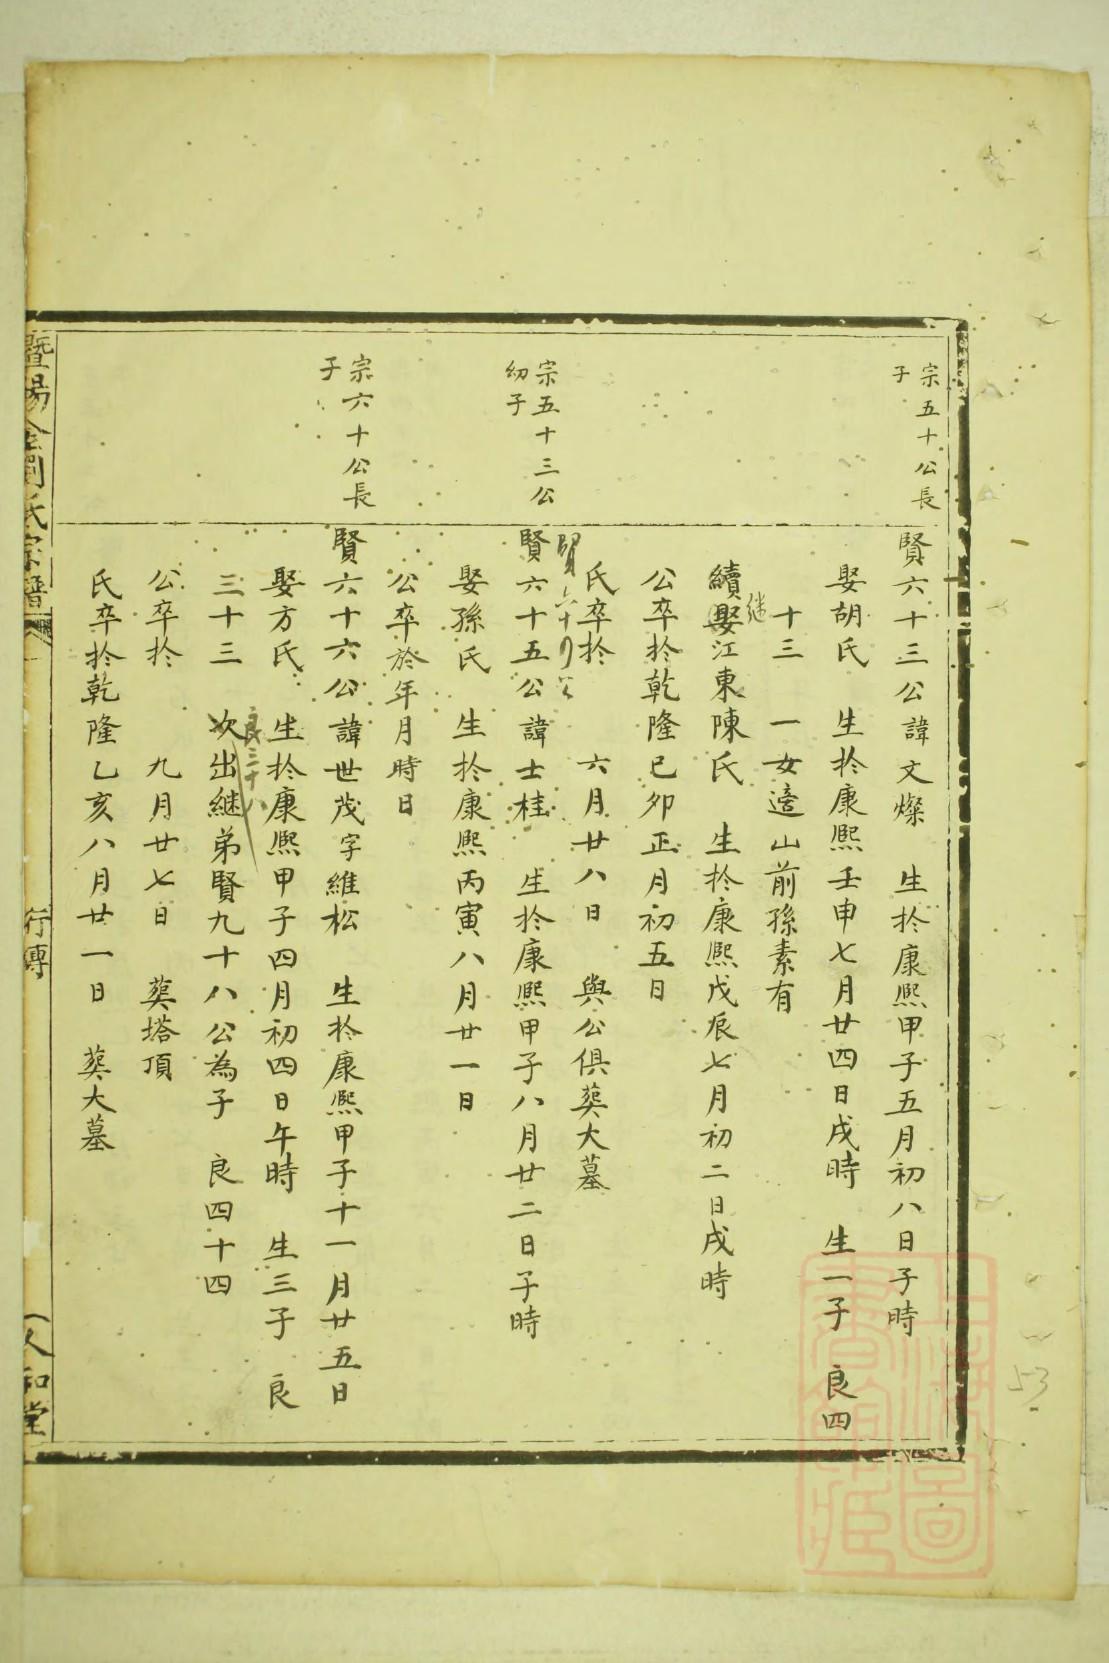 宗五十公長
子
賢六十三公諱文燦 生於康熙甲子五月初八日子時
娶胡氏 生於康熙壬申七月廿四日戌時 生一子 良四
十三 一女適山前孫素有
继
續娶江東陳氏 生於康熙戊辰七月初二日戌時
公卒於乾隆已卯正月初五日
氏卒於 六月廿八日 與公俱葬大墓
宗五十三公
幼子
賢六十五公諱士桂 生於康熙甲子八月廿二日子時
娶孫氏 生於康熙丙寅八月廿一日
公卒於年月時日
宗六十公長
子
賢六十六公諱世茂字維松 生於康熙甲子十一月廿五日
娶方氏 生於康熙甲子四月初四日午時 生三子 良
良三十八
三十三 次出継弟賢九十八公為子 良四十四
公卒於 九月廿七日 葬塔頂
氏卒於乾隆乙亥八月廿一日 葬大墓
暨陽 氏宗譜
行傳
人和堂
上海圖
書館藏
53